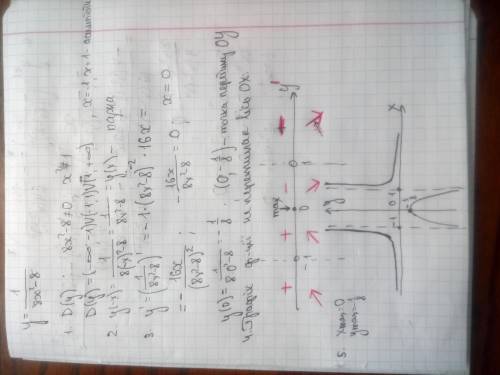 y = 1/(8x²-8)
1. D(y): 8x²-8≠0, x²≠1
D(y)=(-∞;-1)∪(-1;1)∪(1;+∞), x=-1, x=1 - асимптоти
2. y(-x) = 1/(8(-x)²-8) = 1/(8x²-8) = y(x) - парна
3. y' = (1/(8x²-8))' = -1·(8x²-8)⁻²·16x =
= -16x/(8x²-8)²; -16x/(8x²-8) = 0, x=0
y(0) = 1/(8·0²-8) = -1/8. (0;-1/8) - точка перетину OY
4. Графік ф-ції не перетинає вісь OX.
max
+ + - -
y'
-1 0 1
y
5. x max = 0
y max = -1/8
y
-1 0 1 x